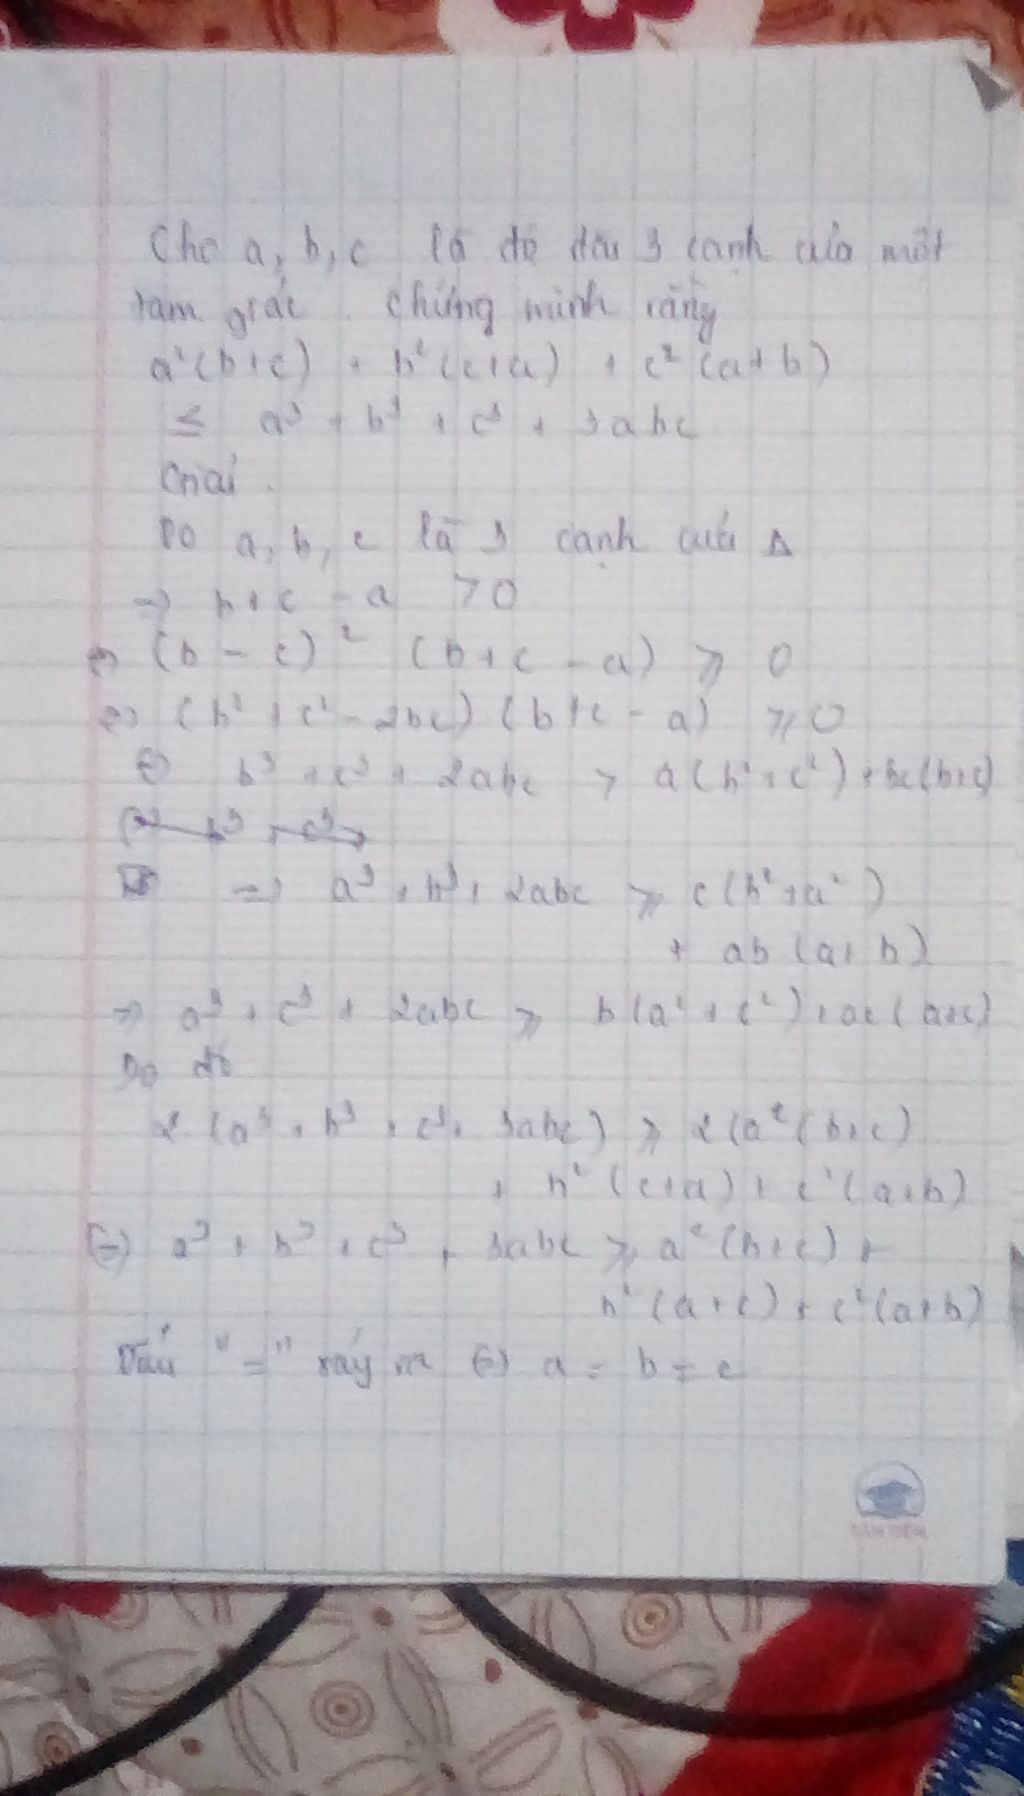 Cho a, b, c là độ dài 3 cạnh của một
tam giác. Chứng minh rằng
a²(b+c) + b²(c+a) + c²(a+b)
≤ a³ + b³ + c³ + 3abc
Giải.
Do a, b, c là 3 cạnh của Δ
=> b+c - a > 0
<=> (b - c)² (b+c - a) ≥ 0
<=> (b² + c² - 2bc) (b+c - a) ≥ 0
<=> b³ + c³ + 2abc ≥ a(b² + c²) + bc(b+c)
=> a³ + b³ + 2abc ≥ c(b² + a²)
+ ab (a+b)
=> a³ + c³ + 2abc ≥ b(a² + c²) + ac(a+c)
Do đó
2 (a³ + b³ + c³ + 3abc) ≥ 2(a²(b+c)
+ b² (c+a) + c²(a+b)
<=> a³ + b³ + c³ + 3abc ≥ a²(b+c) +
b²(a+c) + c²(a+b)
Dấu "=" xảy ra <=> a = b = c